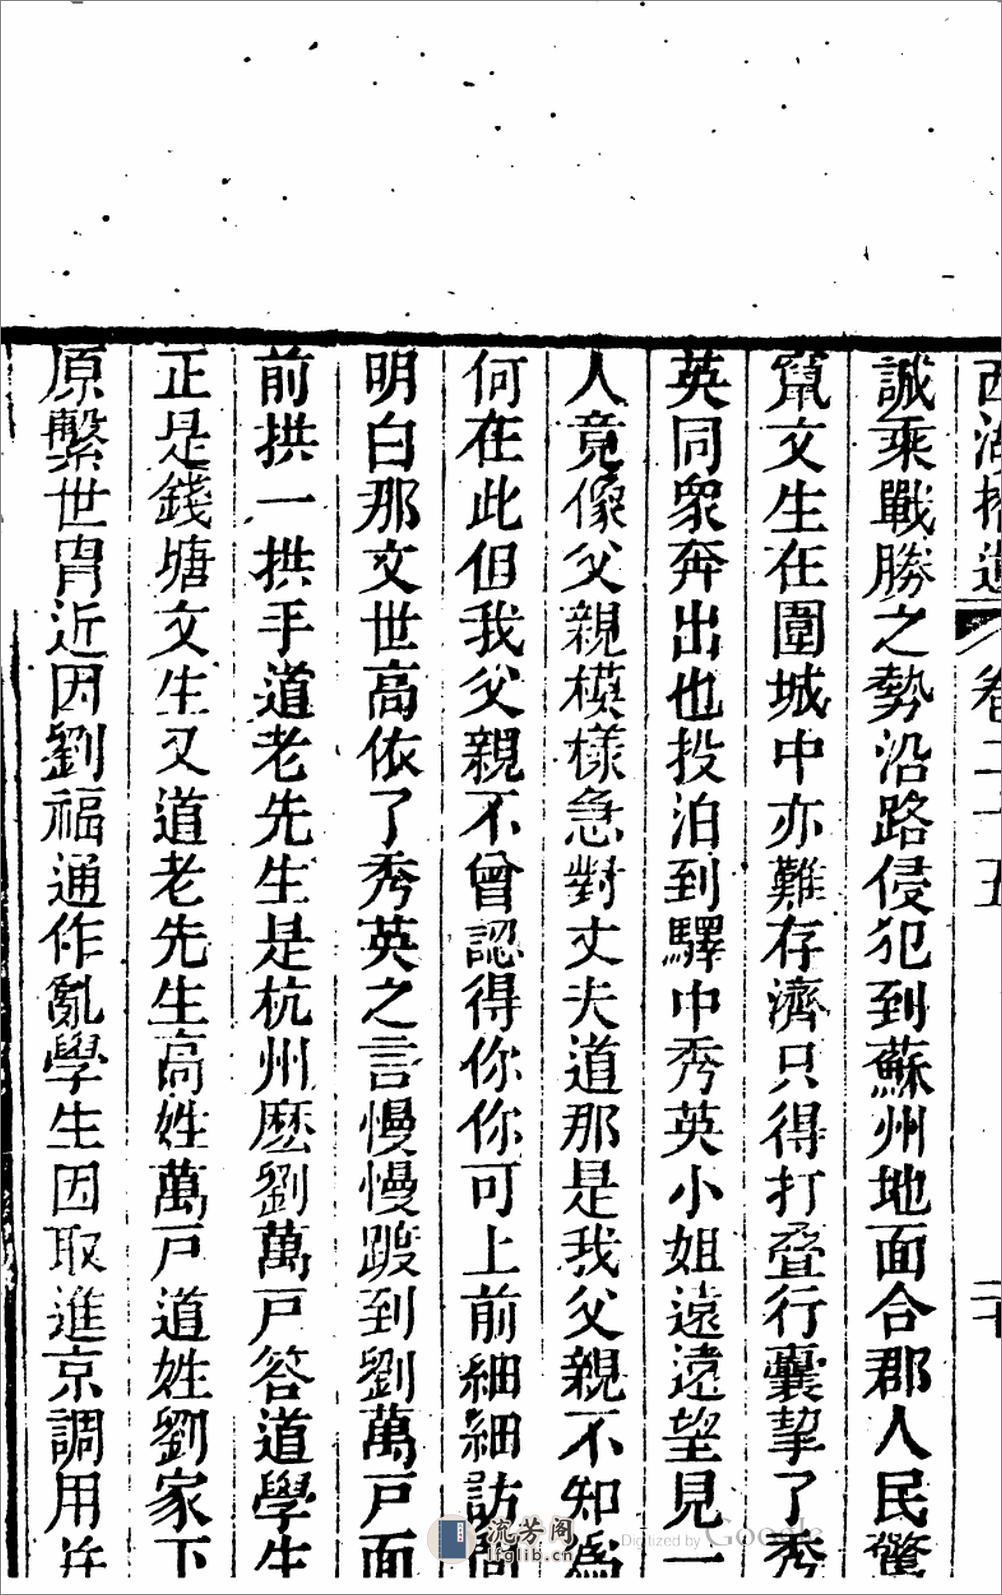 西湖拾遺 卷二十五 二十
誠乘戰勝之勢沿路侵犯到蘇州地面合郡人民驚
竄文生在圍城中亦難存濟只得打疊行囊挈了秀
英同衆奔出也投泊到驛中秀英小姐遠遠望見一
人竟像父親模樣急對丈夫道那是我父親不知爲
何在此但我父親不曾認得你你可上前細細訪問
明白那文世高依了秀英之言慢慢踱到劉萬戸面
前拱一拱手道老先生是杭州麽劉萬戸答道學生
正是錢塘文生又道老先生高姓萬戸道姓劉家下
原繫世胄近因劉福通作亂學生因取進京調用并
流芳阁
lfglib.cn
Digitized by Google